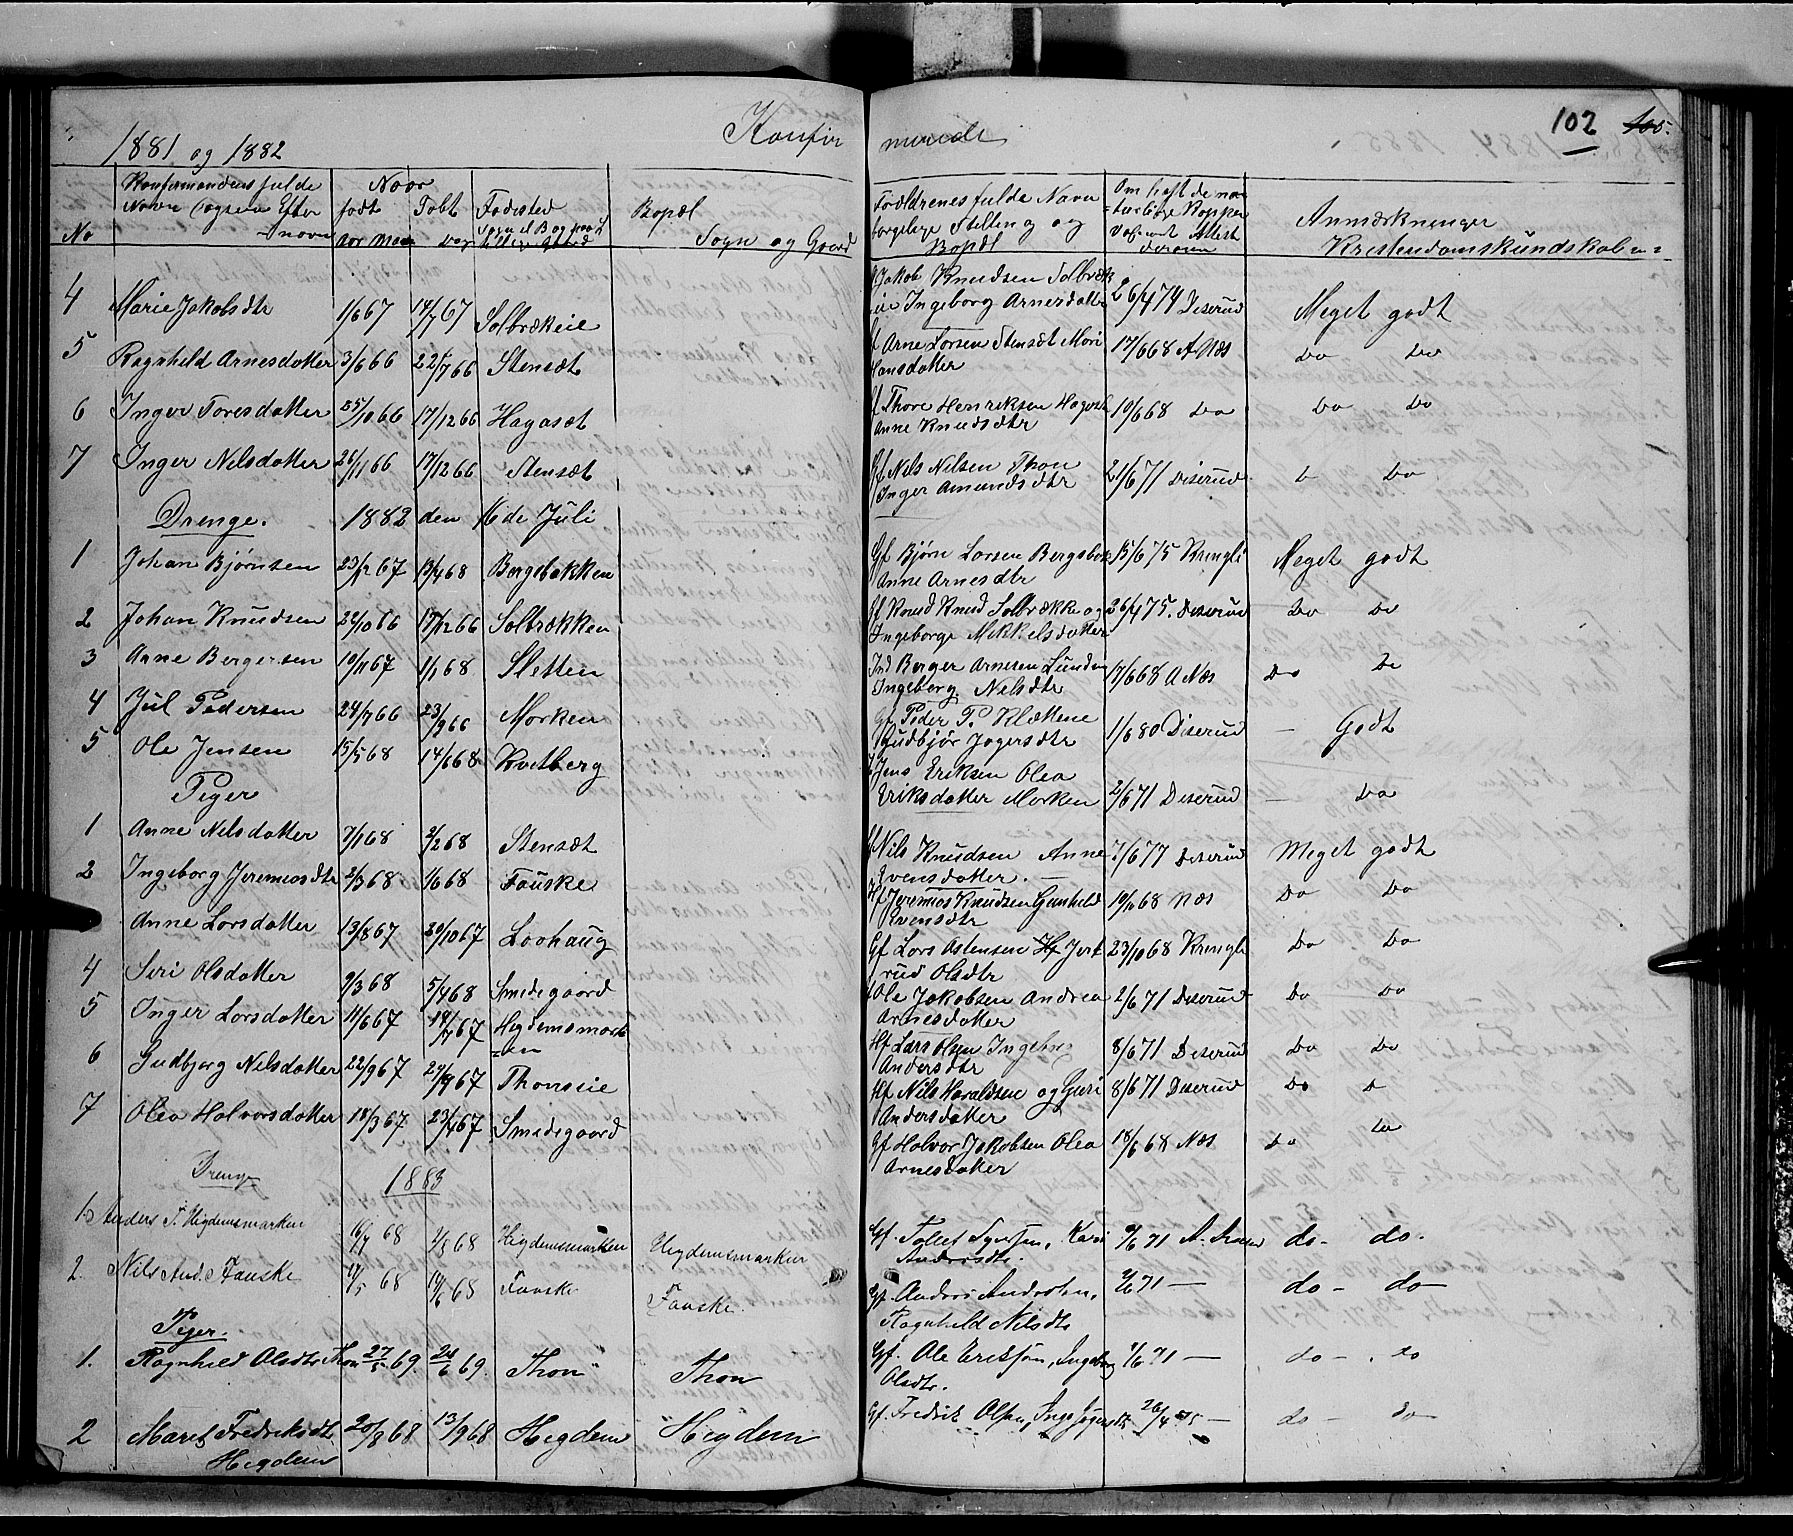 102 105.
1881 og 1882 Konfir merede
No Konfermandens fulde Navn ogsaa Efter navn Naar født aar Maan Døbt Dag Fødested Bopæl Sogn og Gaard
Forældrenes fulde Navn borgelige Stilling og Bopæl Om haft de naturlige Kopper Anmærkninger Kristendomskundskab
4 Marie Jakobsdtr 1/6 67 14/7 67 Solbrækeie Jakob Knudsen Solbræk eie Ingeborg Arnesdatter 26/4 74 Diserud Meget godt
5 Ragnhild Arnesdatter 3/6 66 22/7 66 Stensæt Arne Larsen Stensæt Mari Hansdatter 17/6 68 A Næs Do Do
6 Inger Toresdatter 25/10 66 17/12 66 Hagaset Thore Henriksen Anne Knudsdtr 10/6 68 Do Do Do
7 Inger Nilsdatter 26/11 66 17/12 66 Stensæt Nils Nilsen Thon Inger Amundsdtr 21/6 71 Diserud Do
Drenge. 1882 den 16de Juli
1 Johan Bjørnsen 23/12 67 13/4 68 Bergsbakken Gf Bjørn Larsen Bergsbak Anne Arnesdtr 15/6 75 Kringli Meget godt
2 Johan Knudsen 26/10 66 17/12 66 Solbrækken Gf Knud Knud Solbrække og Ingeborge Mekkelsdatter 26/4 75. Diserud Do Do
3 Arne Bergersen 10/11 67 1/1 68 Sletten Ind Berger Arnesen Lunden Ingeborg Nelsdtr 17/6 68 A Næs Do Do
4 Jul Pedersen 24/7 66 23/9 66 Morken Gf Peder P. Klækene Gudbjør Jogersdtr 1/6 80 Diserud — Godt
5 Ole Jensen 15/5 68 14/6 68 Kvitberg Jens Eriksen Olea Eriksdatter Morken 2/6 71 Diserud — Do
Piger
1 Anne Nelsdatter 7/1 68 2/2 68 Stensæt Nils Knudsen Anne Evensdatter. — 7/6 77 Diserud Meget godt
2 Ingeborg Jeremiosdtr 2/3 68 1/6 68 Fauske Jeremios Knudsen Gunhild Evensdtr 19/6 68 Næs Do Do
Anne Larsdatter 13/8 67 20/10 67 Loohaug Gf Lars Astensen Hf Jert rud Olsdtr 23/10 68 Kringli Do Do
4 Siri Olsdatter 9/3 68 5/4 68 Smedsgaard Ole Jakobsen Andrea Arnesdatter 2/6 71 Diserud Do Do
5 Inger Larsdatter 11/6 67 14/7 67 Hegdemsmark =en Hf Lars Olsen Andersdtr 8/6 71 Diserud Do Do
6 Gudbjorg Nilsdatter 22/9 67 29/9 67 Thonseie Hf Nils Haraldsen og Guri Andersdatter 8/6 71 Diserud Do D
7 Olea Halvorsdatter 18/3 67 23/4 67 Smedsgaard Gf Halvor Jakobsen Olea Arnesdatter 18/6 68 Næs Do Do
Drenge 1883
1. Anders T. Hegdemsmarken 16/7 68 2/8 68 Hegdemsmarken Hegdemsmarken Gf. Tollef Kari Andersdtr. 9/6 71 do- do-
2. Nils And. Fauske 17/5 68 14/6 68 Fauske Fauske. Gf. Anders Andersen, Ragnhild Nilsdtr 2/6 71 — do — do —
Piger.
1. Ragnhild Olsdtr Thon 27/5 69. 24/6 69. Thon Thon Gf. Ole Eriksen, Ingeborg Olsdtr. 7/6 71 — do — do
2 Marit Fredriksdtr Hegdem 20/8 68 13/9 68 Hegdem Hegdem Gf. Fredrik Olsen, 26/4 75 — do — do —